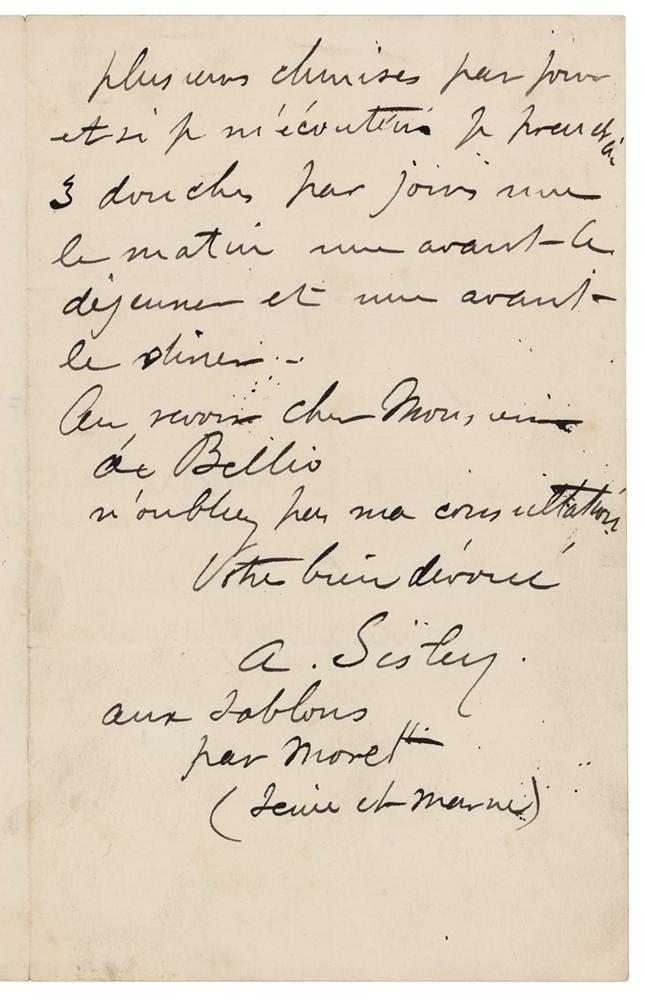 plusieurs chemises par jour
et si je m'écoutais je prendrais
3 douches par jours une
le matin une avant le
déjeuner et une avant
le diner. -
Au revoir cher Monsieur
de Bellio
n'oubliez pas ma consultation.
Votre bien dévoué
A. Sisley.
aux Sablons
par Moret
(Seine et Marne)